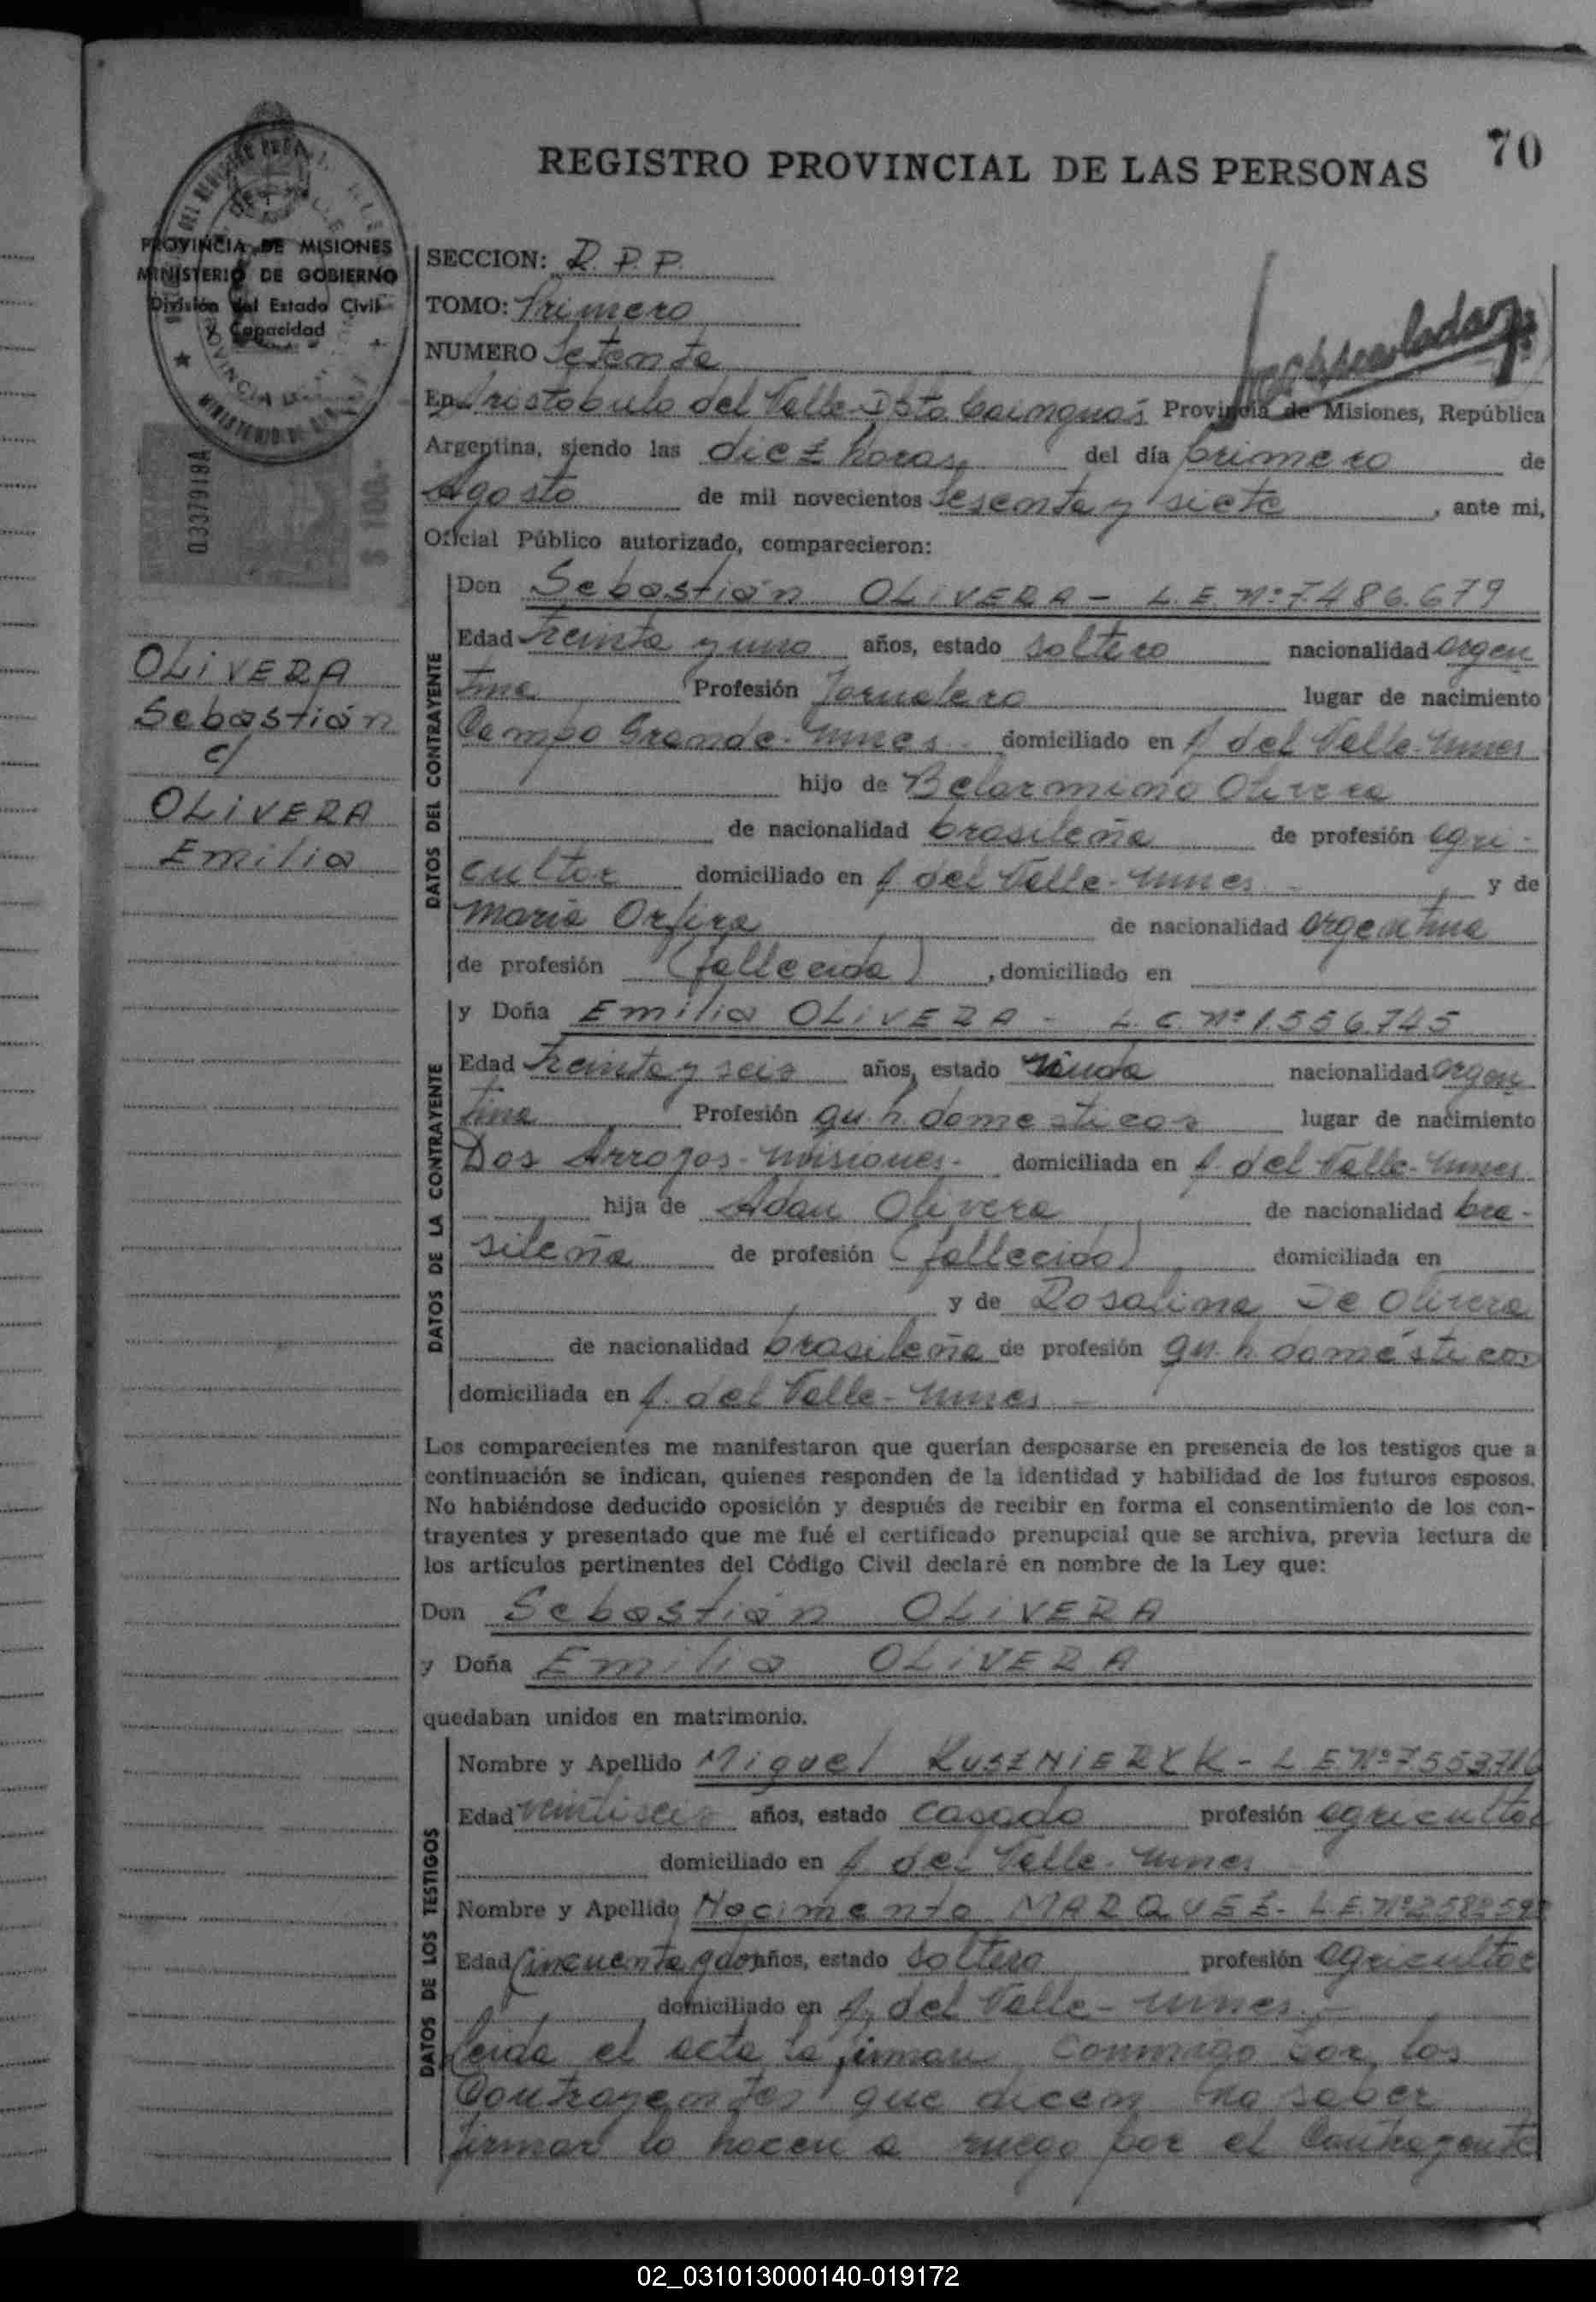 70
REGISTRO PROVINCIAL DE LAS PERSONAS
PROVINCIA DE MISIONES
MINISTERIO DE GOBIERNO
División del Estado Civil
y Capacidad
0337918A
$ 100.-
OLiVERA
Sebastián
c/
OLiVERA
Emilia
SECCION: R. P. P.
TOMO: Primero
NUMERO Setenta
En Aristobulo del Valle-Dpto Cainguás Provincia de Misiones, República
Argentina, siendo las diez horas, del día primero de
Agosto de mil novecientos Sesenta y siete, ante mi,
Oficial Público autorizado, comparecieron:
DATOS DEL CONTRAYENTE
Don Sebastián OLiVERA - L.E. Nº 7.486.679
Edad treinta y uno años, estado soltero nacionalidad argen
tina Profesión Jornalero lugar de nacimiento
Campo Grande-Mnes. domiciliado en A. del Valle-Mnes
hijo de Belarmino Olivera
de nacionalidad brasileña de profesión agri-
cultor domiciliado en A. del Valle-Mnes. y de
Maria de nacionalidad argentina
de profesión (fallecida), domiciliado en
DATOS DE LA CONTRAYENTE
y Doña Emilia OLiVERA - L.C. Nº 1.556.745
Edad treinta y seis años, estado viuda nacionalidad argen
tina Profesión qu.h. domesticos lugar de nacimiento
Dos Arroyos-Misiones- domiciliada en A. del Valle-Mnes.
hija de Adan Olivera de nacionalidad bra-
sileña de profesión (fallecido) domiciliada en
y de Rosalina De Olivera
de nacionalidad brasileña de profesión qu. h. domésticos
domiciliada en A. del Valle-Mnes -
Los comparecientes me manifestaron que querían desposarse en presencia de los testigos que a
continuación se indican, quienes responden de la identidad y habilidad de los futuros esposos.
No habiéndose deducido oposición y después de recibir en forma el consentimiento de los con-
trayentes y presentado que me fué el certificado prenupcial que se archiva, previa lectura de
los artículos pertinentes del Código Civil declaré en nombre de la Ley que:
Don Sebastián OLiVERA
y Doña Emilia OLiVERA
quedaban unidos en matrimonio.
DATOS DE LOS TESTIGOS
Nombre y Apellido Miguel KUSZNIERYK - L.E. Nº 7.553.716
Edad veintiseis años, estado casado profesión agricultor
domiciliado en A. del Valle-Mnes
Nombre y Apellido Nacimento MARQUEZ- L.E. Nº
Edad Cincuenta y dos años, estado soltero profesión agricultor
domiciliado en A. del Valle-Mnes.-
Leida el acta la firman conmigo por los
Contrayentes que dicen no saber
firmar lo hacen a ruego por el Contrayente
02_031013000140-019172